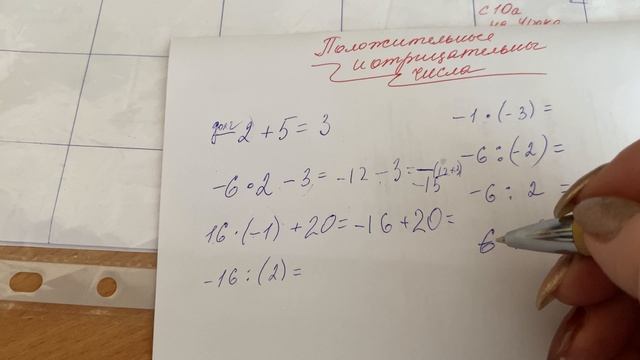 с 10а
Положительные
и отрицательны
числа
долг
-2 + 5 = 3
-6 • 2 - 3 = -12 - 3 = -(12+3)
-15
16 · (-1) + 20 = -16 + 20 =
-16 : (2) =
-1 · (-3) =
-6 : (-2) =
-6 : 2 =
6